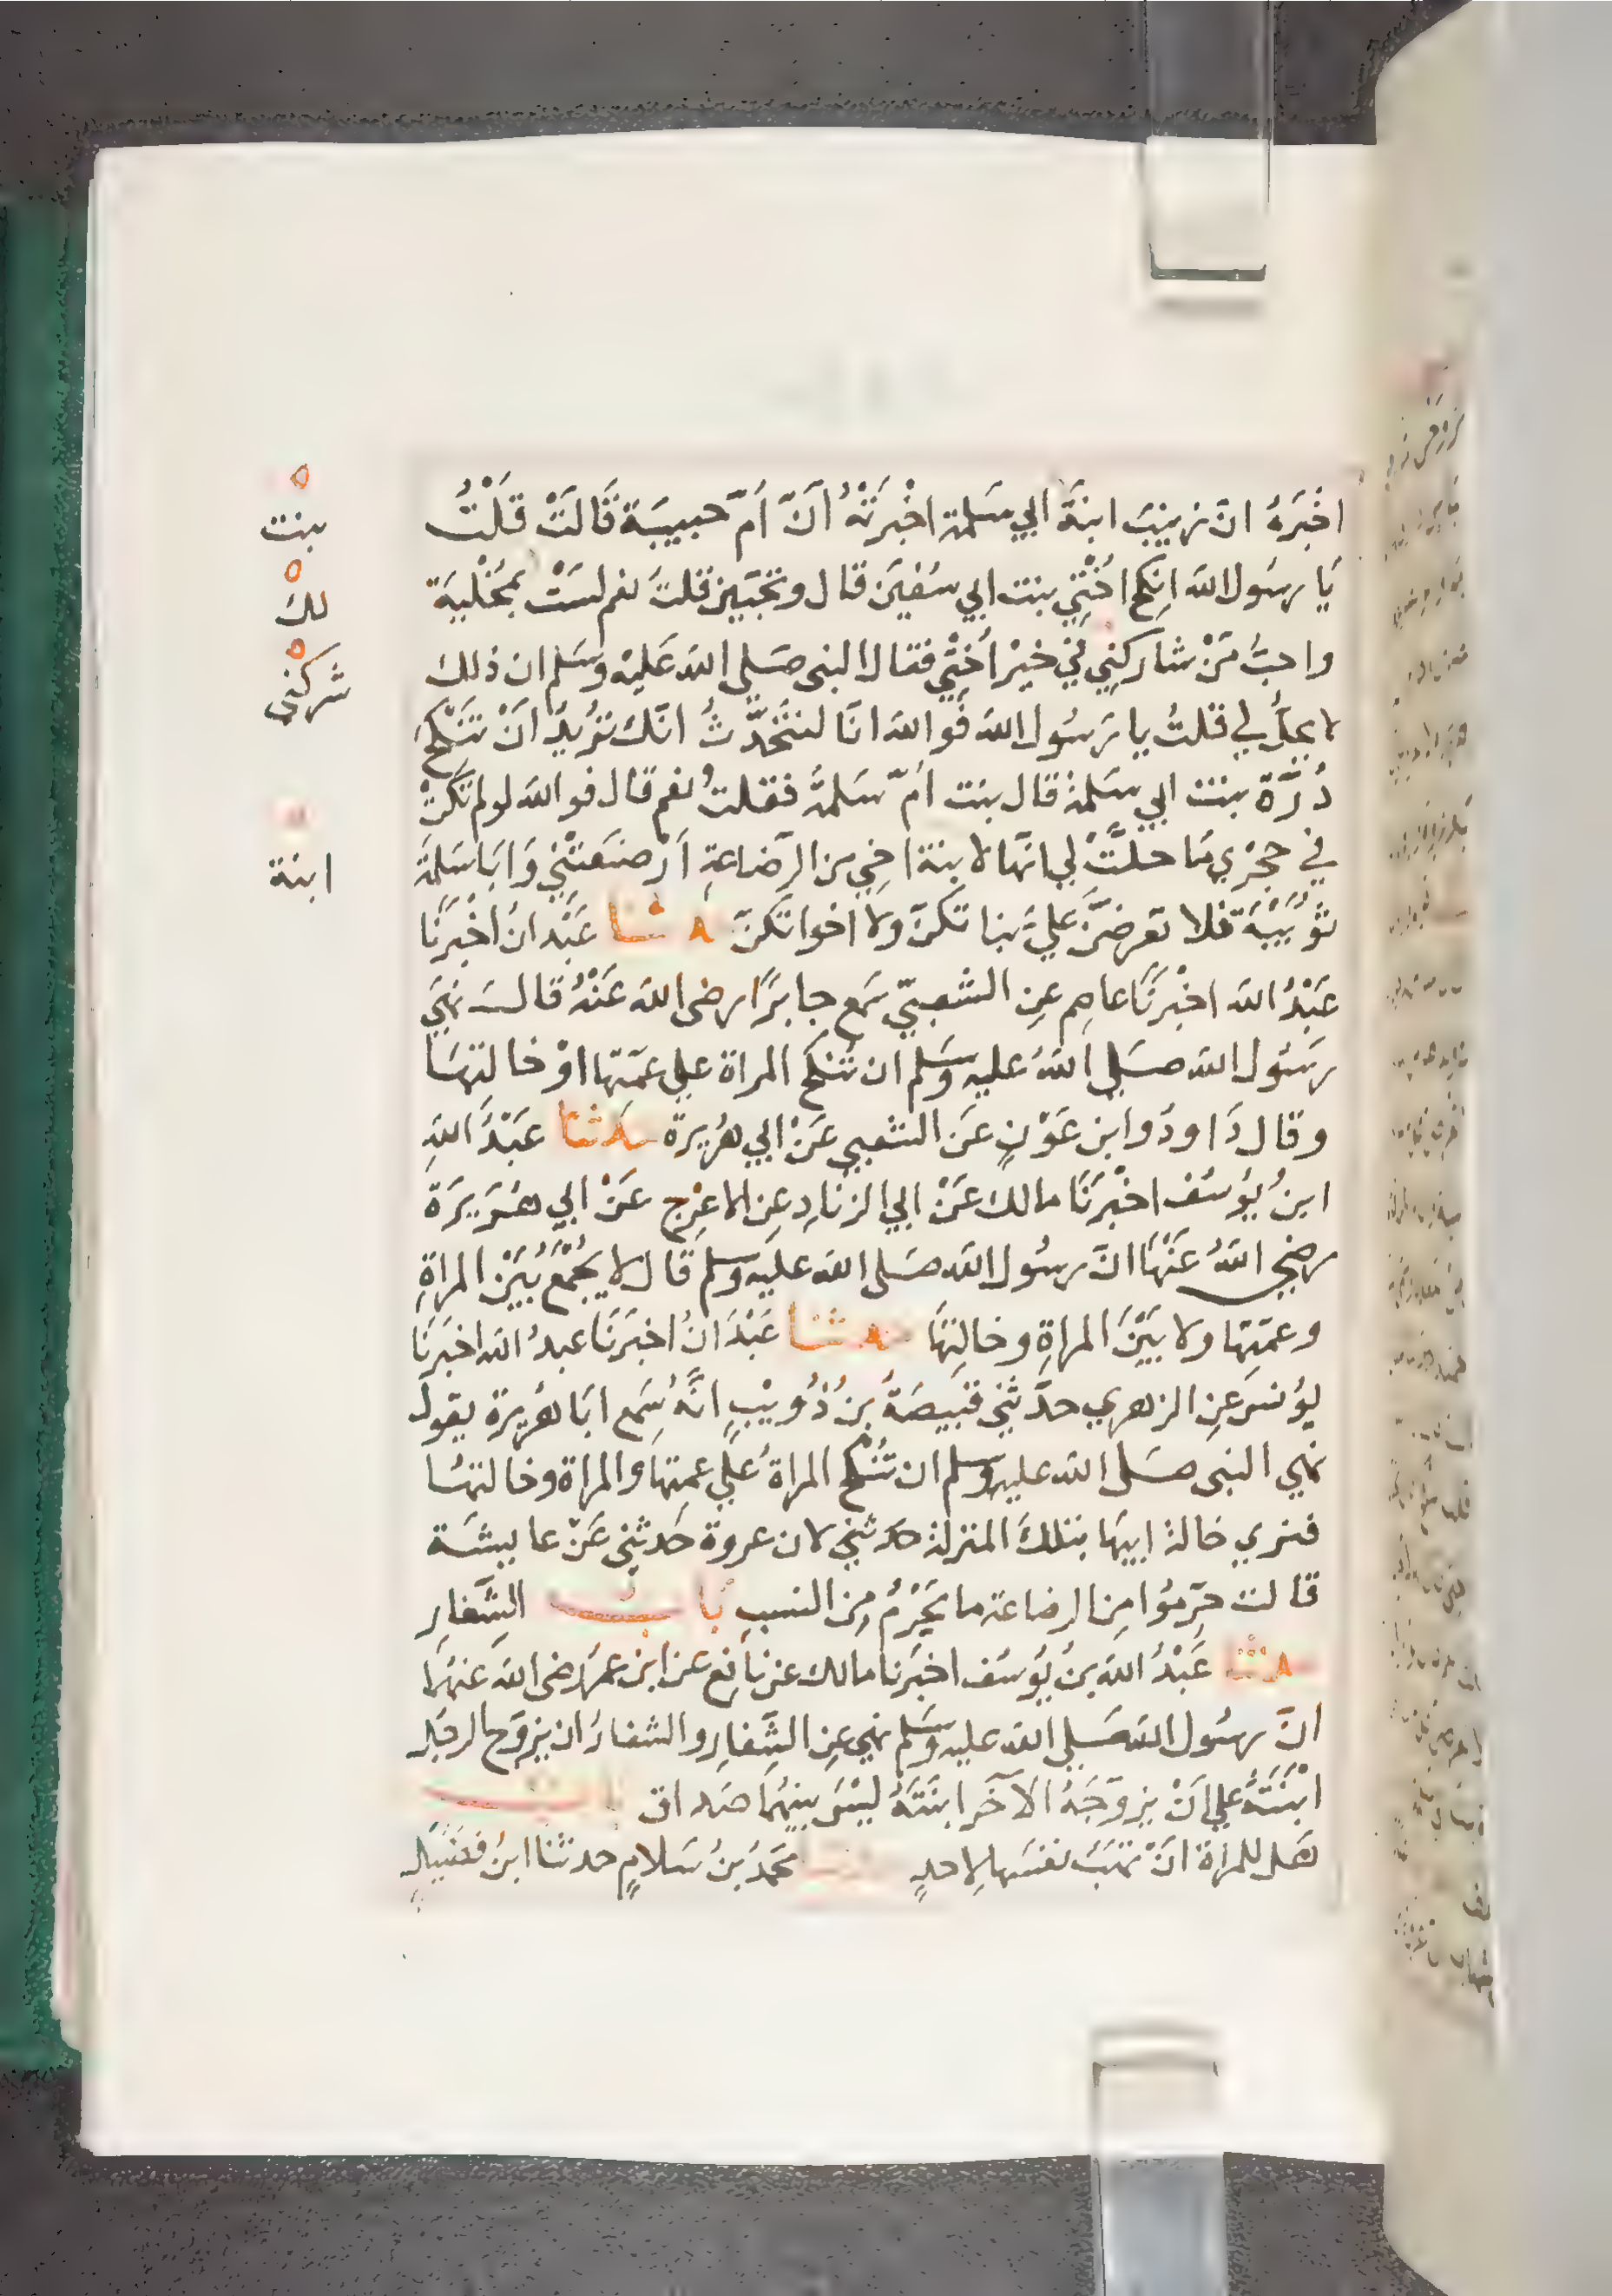 اخْبَرَهُ انَّ زينبَ ابنةَ ابي سَلمة اخْبَرَتْهُ انَّ اُمّ حبيبَة قَالَتْ قُلْتُ
يَا رسُول الله انكِح اخْتِي بنت ابي سُفينَ قال وتحبّين قلتُ نعم لسَتْ بمُخْليَة
واحبُّ مَنْ شاركني في خيْر أختي فقال النبى صَلى الله عَليْه وسَلم ان ذلك
لا يحلُّ لي قلتُ يا رَسُول الله فَوالله انَا لنتحَدَّثُ انّك تُريدُ انْ تنْكح
دُرَّة بنت ابي سَلمة قال بنت امّ سَلمة فقلتُ نعم قال فوالله لو لم تكنْ
في حجْري مَا حلَّتْ لي انّها لابنة اخي من الرَّضاعةِ ارْضَعتْني وَابَا سَلمَة
ثُوَيْبَة فلا تعرضْنَ عليَّ بَناتكنّ ولا اخواتكنّ حدثنا عَبْدان اخْبرَنَا
عَبْدُ الله اخْبرَنَا عاصِم عن الشعبيّ سَمع جابرًا رضى الله عَنْهُ قال نهَى
رسُول الله صَلى اللهُ عليه وسَلم ان تُنكح المراة على عمّتها اوْ خالتها
وقال دَاودُ وابن عَوْنٍ عَن الشعبي عَنْ ابي هُريرة حدثنا عَبْدُ اللهِ
ابنُ يُوسُف اخْبرَنَا مالك عَنْ ابي الزنادِ عن الاعْرج عَنْ ابي هُرَيرَة
رضي اللهُ عَنْهَا انَّ رسُول الله صَلى الله عليه وسلم قال لا يُجْمَعُ بَيْن المراةِ
وعمّتها ولا بَيْنَ المراةِ وخالتِهَا حدثنا عَبْدَانُ اخبَرَنَا عبدُ الله اخبَرَنَا
يُونسَ عن الزهري حدَّثني قبيصَةُ بن ذُويْبٍ انَّهُ سَمع ابَا هُريرة يقول
نهي النبى صَلى الله عليه وسلم ان تُنكح المراةُ علي عمتِها والمراة وخالتها
فنرى خالة ابيهَا بتلكَ المنزلة حدثني لان عروة حَدثني عَنْ عايشَة
قالت حرّمُوا من الرضاعة ما يَحْرُمُ من النسبِ بَاب الشغار
حدثنا عَبْدُ الله بنُ يُوسُف اخبَرنا مالك عن نافع عن ابن عمرَ رضى الله عنهُما
انَّ رسُول الله صَلي الله عليه وسَلم نهي عن الشِّغارِ والشغارُ ان يزوّج الرجُل
ابْنتَهُ علي انْ يزوّجَهُ الآخَر ابنَتَهُ ليْسَ بينهُما صَداق باب
هَل للمراة انْ تهَبَ نفسَها لاحدٍ حدثنا محَمدُ بنُ سَلامٍ حدثنا ابنُ فضَيلٍ
بنت
لك
شركني
ابنة